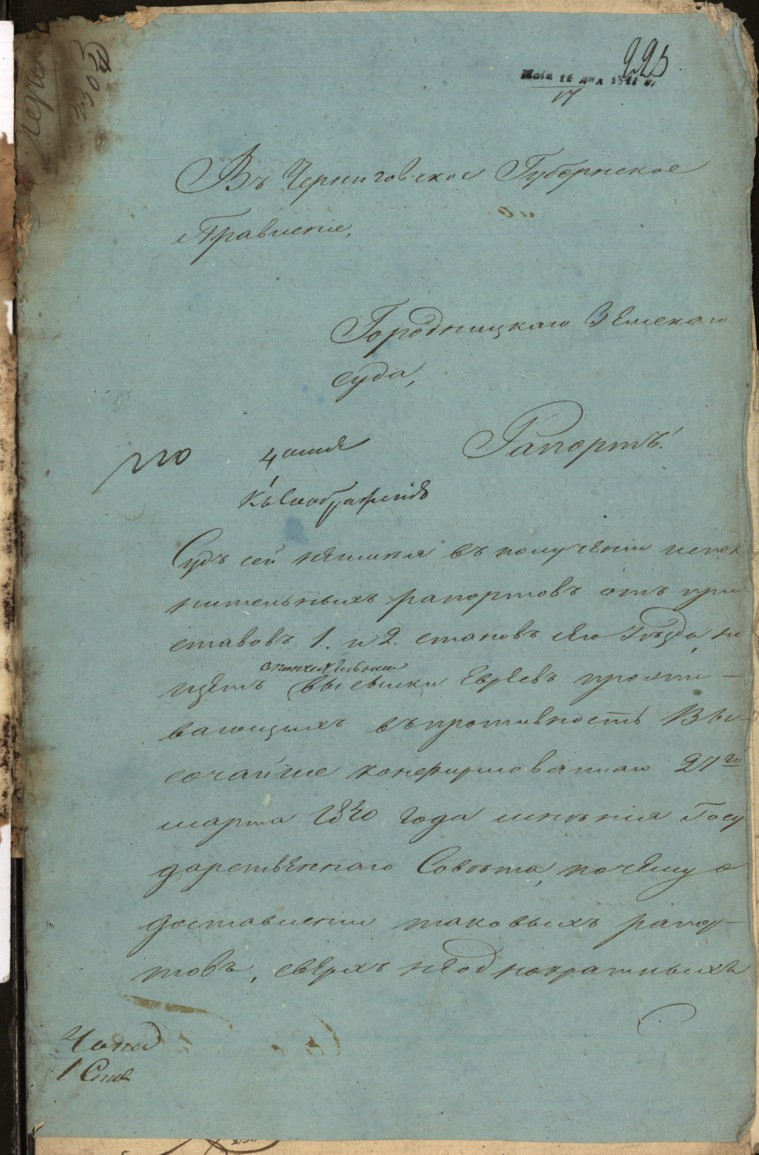 225
Въ Черниговское Губернское
Правленіе,
Городницкаго Земскаго
суда,
Рапортъ.
Къ Соображенію
Судъ сей неимѣя въ полученіи испол
нительныхъ рапортовъ отъ при
ставовъ 1. и 2. становъ сего Уѣзда, на
щетъ
высылки Евреевъ прожи-
вающихъ въ противность Вы-
сочайше конфирмованнаго 27го
марта 1840 года мнѣнія Госу
дарственнаго Совѣта, почему о
доставленіи таковыхъ рапор-
товъ, сверхъ неоднократныхъ